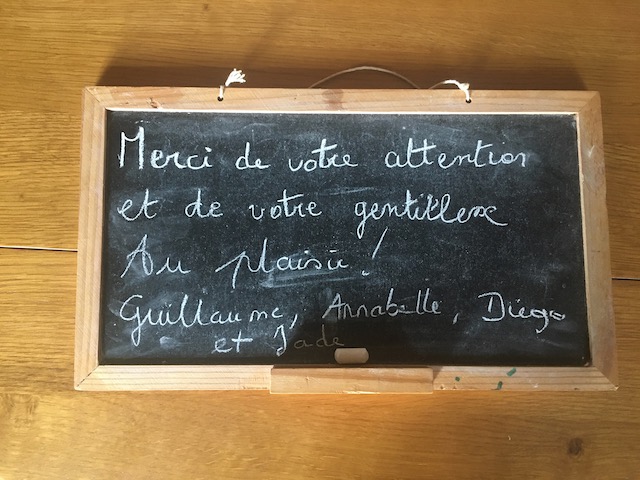 Merci de votre attention
et de votre gentillesse
Au plaisir!
Guillaume, Annabelle, Diego
et Jade